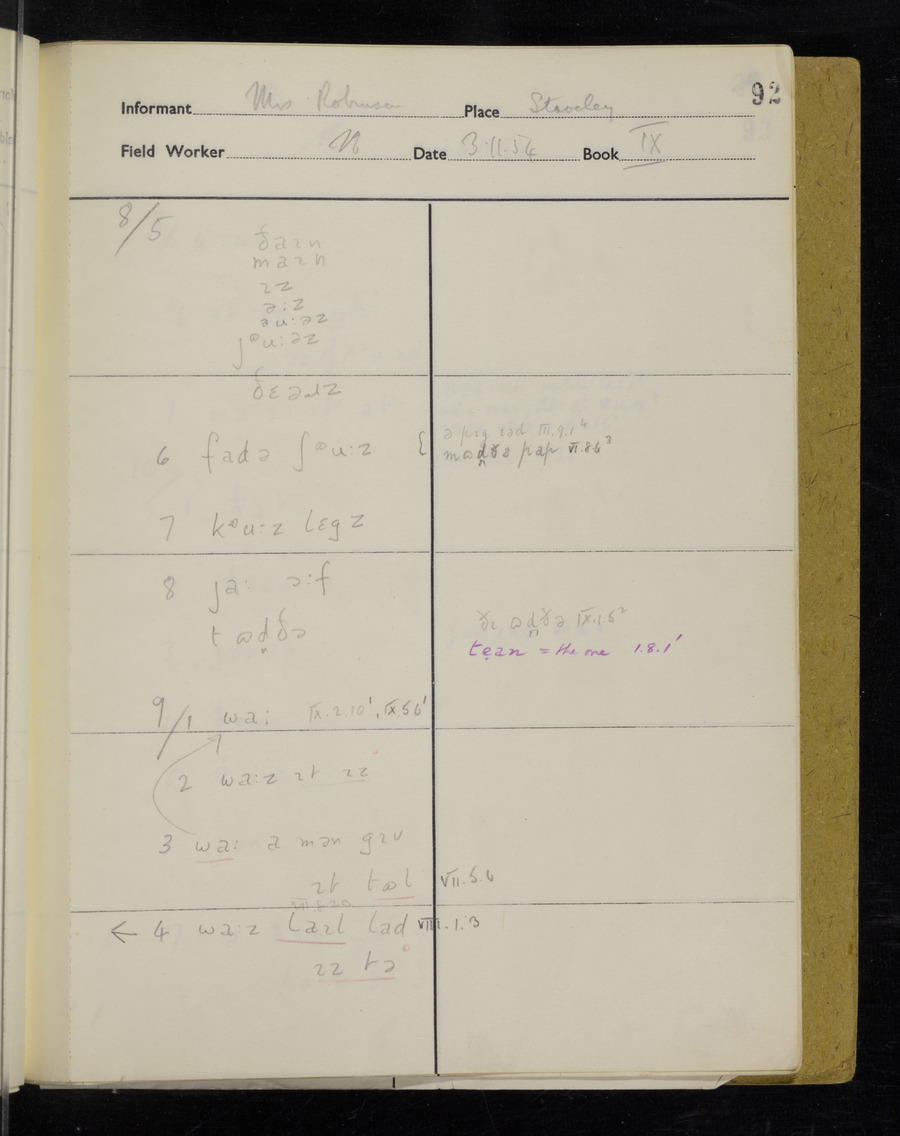 92
Informant Mrs Robinson Place Staveley
Field Worker Date 3.11.54 Book IX
8/5 ðaɪn
maɪn
ɪz
ə:z
əu:əz
ðɛəɹz
6 fadə ʃᵊu:z { ə pɪg ɪəd III.9.1⁴
mɷd̪ðə pap VI.8.6³
7 kᵊu:z lɛgz
8 ja: ɔ:f
t ɷd̪ðə ðɪ ɷd̪ðə IX.1.5²
tẹan = the one 1.8.1'
9/1 wa: IX.2.10', IX.5.6'
2 wa:z ɪt ɪz
3 wa: ə mən gɪv
ɪt tɷl VII.5.6
← 4 wa:z laɪl lad VIII.1.3
ɪz tə